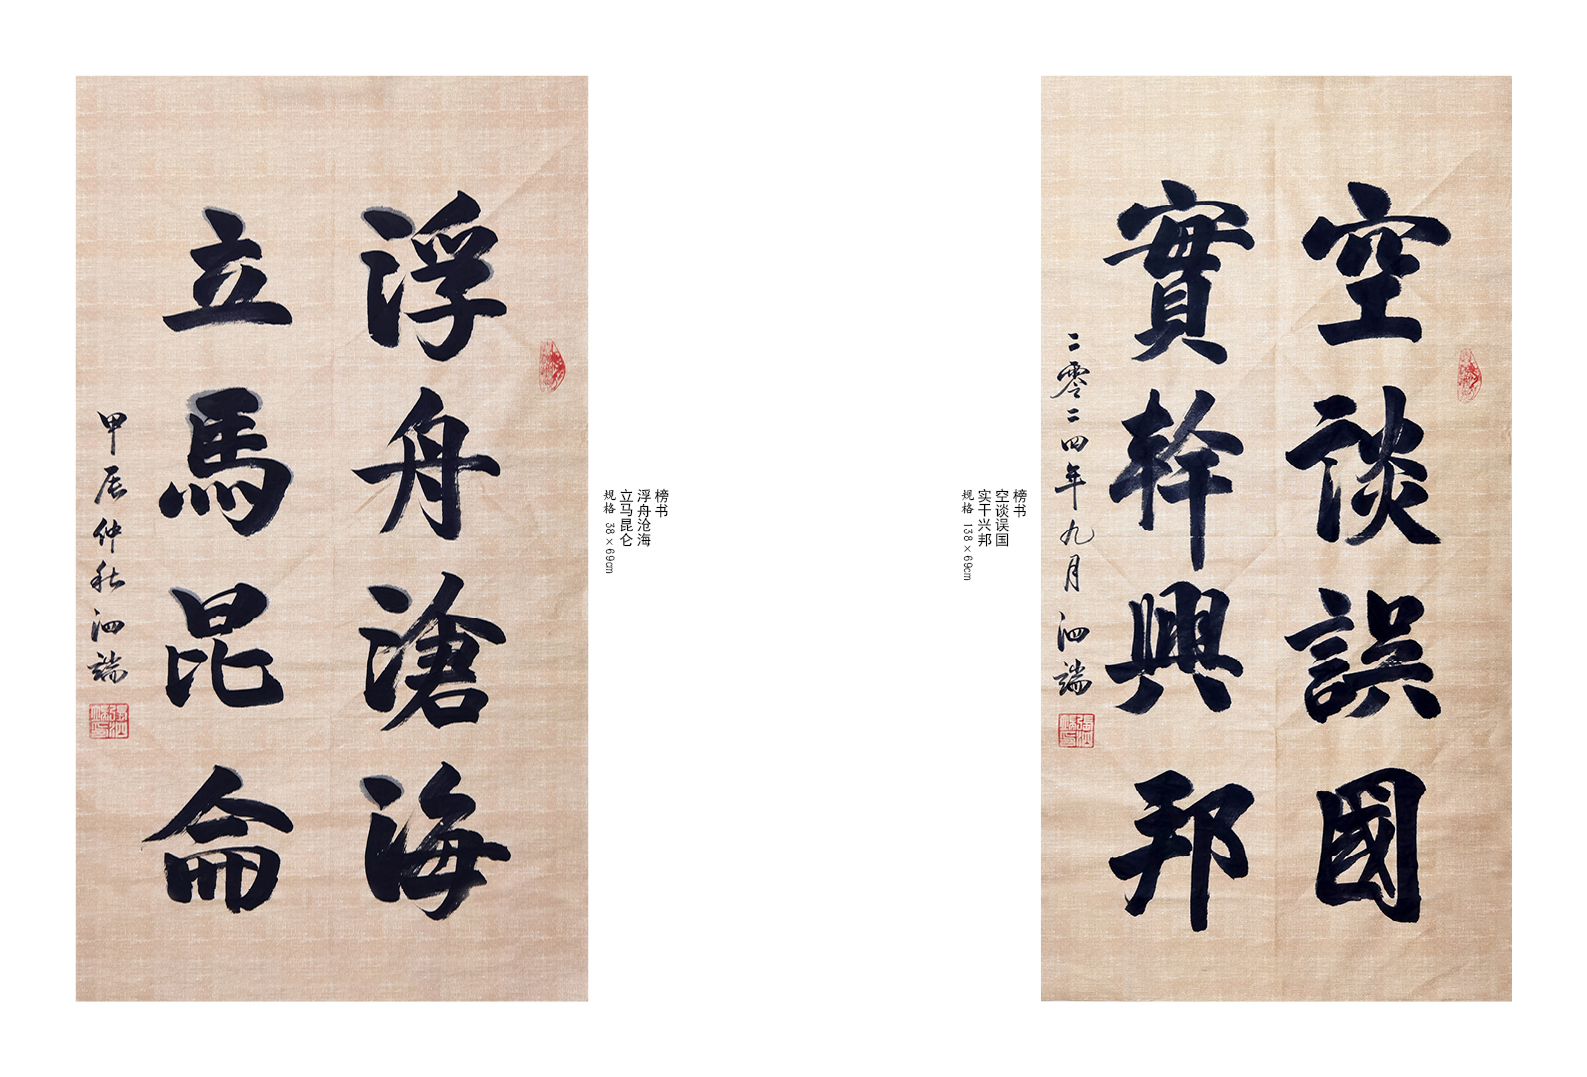 空談誤國
實幹興邦
二零二四年九月 泗端
榜书
空谈误国
实干兴邦
规格 138×69cm
榜书
浮舟沧海
立马昆仑
规格 38×69cm
浮舟滄海
立馬昆侖
甲辰仲秋 泗端